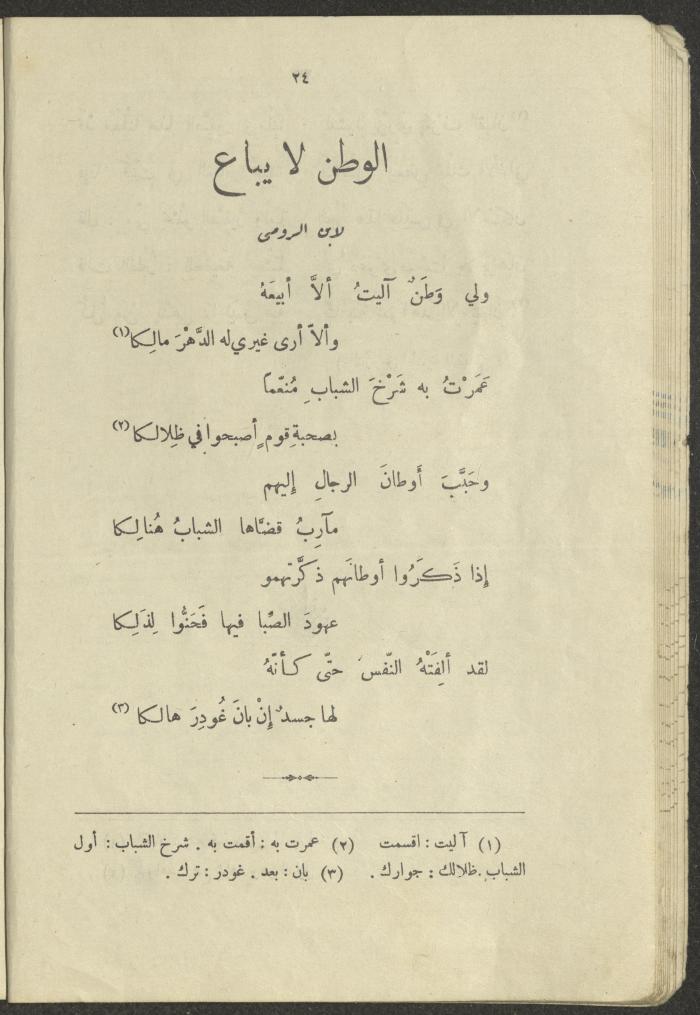 ٢٤
الوطن لا يباع
لابن الرومى
ولي وَطَنٌ آليتُ ألاَّ أبيعَهُ
وألاّ أرى غيري له الدَّهْرَ مالِكا (١)
عَمَرْتُ به شَرْخَ الشبابِ مُنَعّماً
بصحبةِ قومٍ أصبحوا في ظِلالكا (٢)
وحَبَّبَ أَوطانَ الرجالِ إِليهم
مآرِبُ قضَّاها الشبابُ هُنالِكا
إِذا ذَكَرُوا أوطانَهم ذكَّرتهمو
عهودَ الصِّبا فيها فَحَنُّوا لِذَلِكا
لقد ألِفَتْهُ النّفس حتّى كأنّهُ
لها جسدٌ إِنْ بانَ غُودِرَ هالكا (٣)
(١) آليت : اقسمت (٢) عمرت به : أقمت به . شرخ الشباب : أول
الشباب . ظلالك : جوارك . (٣) بان : بعد . غودر : ترك .